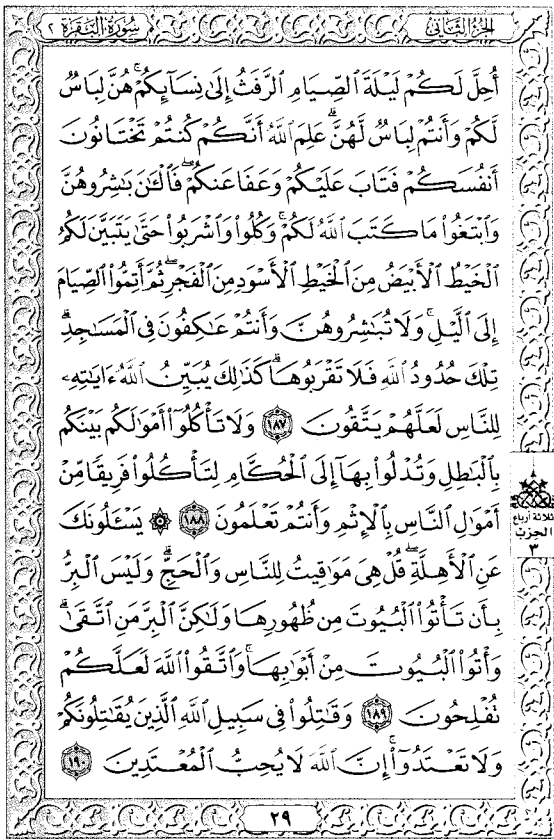 الجزء الثاني
سورة البقرة ٢
أُحِلَّ لَكُمْ لَيْلَةَ ٱلصِّيَامِ ٱلرَّفَثُ إِلَىٰ نِسَآئِكُمْ ۚ هُنَّ لِبَاسٌ
لَّكُمْ وَأَنتُمْ لِبَاسٌ لَّهُنَّ ۗ عَلِمَ ٱللَّهُ أَنَّكُمْ كُنتُمْ تَخْتَانُونَ
أَنفُسَكُمْ فَتَابَ عَلَيْكُمْ وَعَفَا عَنكُمْ ۖ فَٱلْـَٰٔنَ بَـٰشِرُوهُنَّ
وَٱبْتَغُوا۟ مَا كَتَبَ ٱللَّهُ لَكُمْ ۚ وَكُلُوا۟ وَٱشْرَبُوا۟ حَتَّىٰ يَتَبَيَّنَ لَكُمُ
ٱلْخَيْطُ ٱلْأَبْيَضُ مِنَ ٱلْخَيْطِ ٱلْأَسْوَدِ مِنَ ٱلْفَجْرِ ۖ ثُمَّ أَتِمُّوا۟ ٱلصِّيَامَ
إِلَى ٱلَّيْلِ ۚ وَلَا تُبَـٰشِرُوهُنَّ وَأَنتُمْ عَـٰكِفُونَ فِى ٱلْمَسَـٰجِدِ ۗ
تِلْكَ حُدُودُ ٱللَّهِ فَلَا تَقْرَبُوهَا ۗ كَذَٰلِكَ يُبَيِّنُ ٱللَّهُ ءَايَـٰتِهِۦ
لِلنَّاسِ لَعَلَّهُمْ يَتَّقُونَ ١٨٧ وَلَا تَأْكُلُوٓا۟ أَمْوَٰلَكُم بَيْنَكُم
بِٱلْبَـٰطِلِ وَتُدْلُوا۟ بِهَآ إِلَى ٱلْحُكَّامِ لِتَأْكُلُوا۟ فَرِيقًا مِّنْ
أَمْوَٰلِ ٱلنَّاسِ بِٱلْإِثْمِ وَأَنتُمْ تَعْلَمُونَ ١٨٨ ۞ يَسْـَٔلُونَكَ
عَنِ ٱلْأَهِلَّةِ ۖ قُلْ هِىَ مَوَٰقِيتُ لِلنَّاسِ وَٱلْحَجِّ ۗ وَلَيْسَ ٱلْبِرُّ
بِأَن تَأْتُوا۟ ٱلْبُيُوتَ مِن ظُهُورِهَا وَلَـٰكِنَّ ٱلْبِرَّ مَنِ ٱتَّقَىٰ ۗ
وَأْتُوا۟ ٱلْبُيُوتَ مِنْ أَبْوَٰبِهَا ۚ وَٱتَّقُوا۟ ٱللَّهَ لَعَلَّكُمْ
تُفْلِحُونَ ١٨٩ وَقَـٰتِلُوا۟ فِى سَبِيلِ ٱللَّهِ ٱلَّذِينَ يُقَـٰتِلُونَكُمْ
وَلَا تَعْتَدُوٓا۟ ۚ إِنَّ ٱللَّهَ لَا يُحِبُّ ٱلْمُعْتَدِينَ ١٩٠
ثلاثة أرباع
الحزب
٣
٢٩